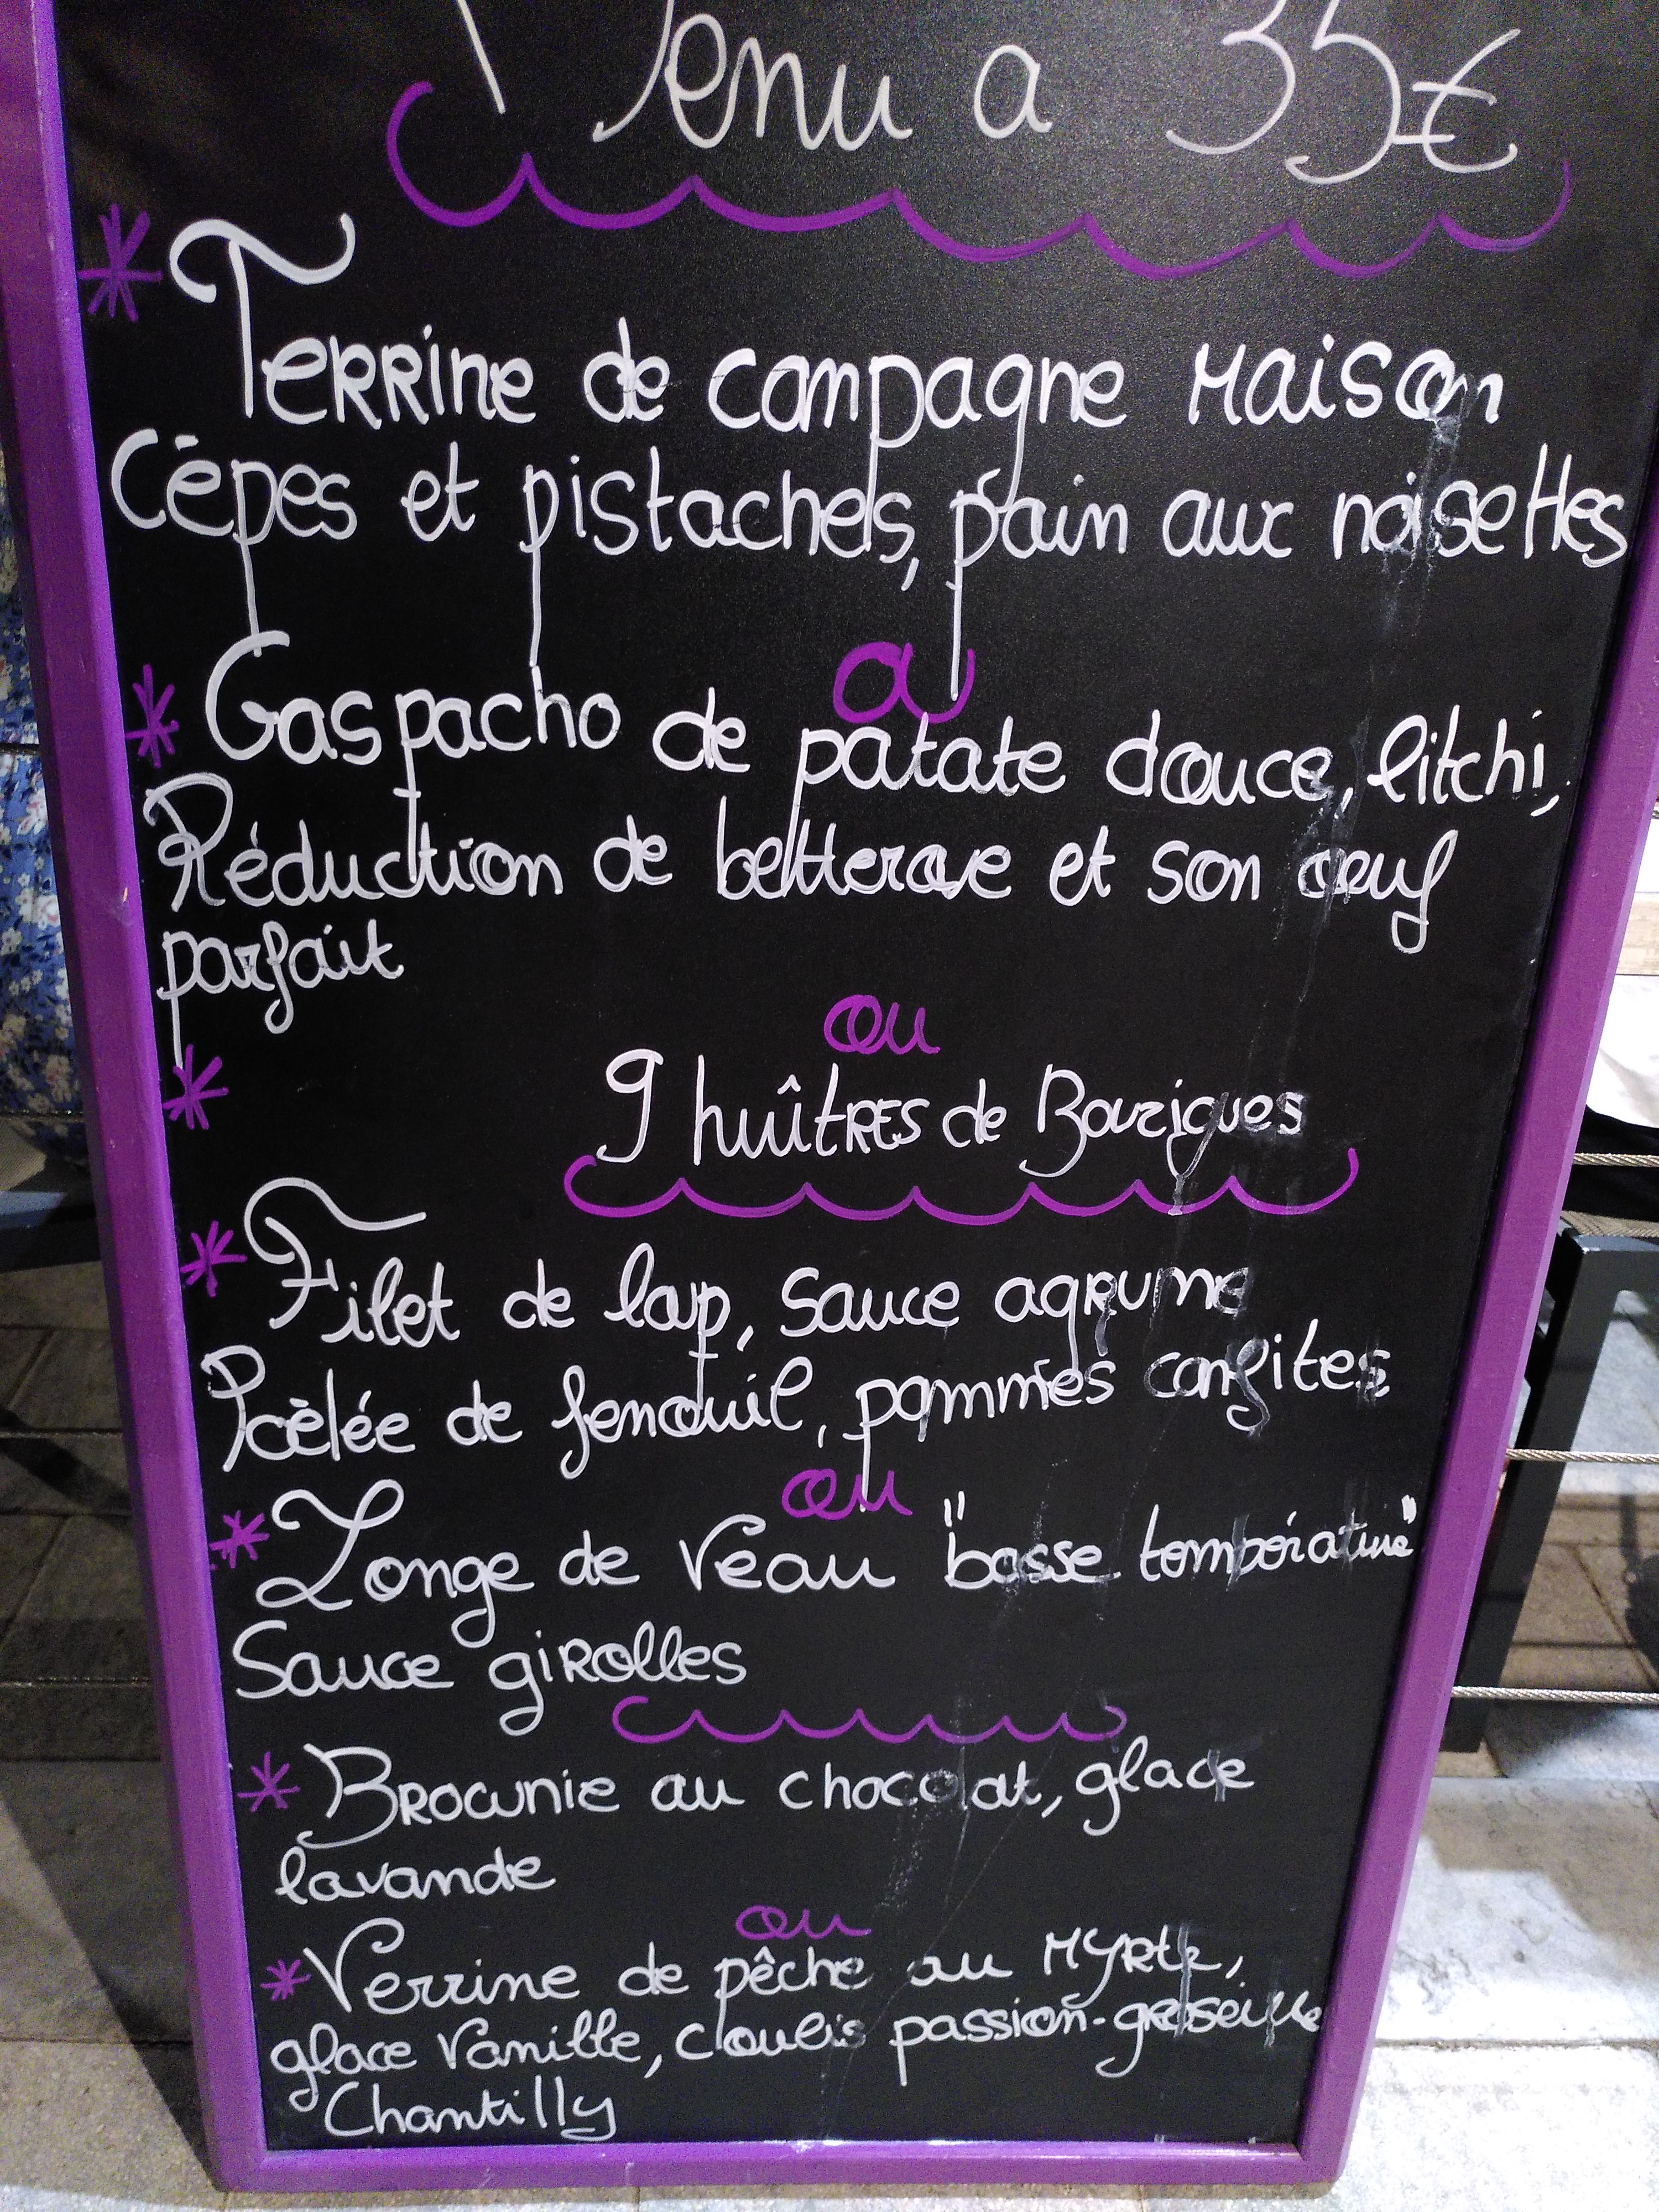 Menu a 35€
* Terrine de campagne Maison
Cèpes et pistaches, pain aux noisettes
ou
* Gaspacho de patate douce, litchi,
Réduction de betterave et son oeuf
parfait
ou
* 9 huîtres de Bouzigues
* Filet de lap, Sauce agrume
Poèlée de fenouil, pommes confites
ou
* Longe de Veau "basse température"
Sauce girolles
* Brownie au chocolat, glace
lavande
ou
* Verrine de pêche au Myrte,
glace Vanille, coulis passion-groseille
Chantilly